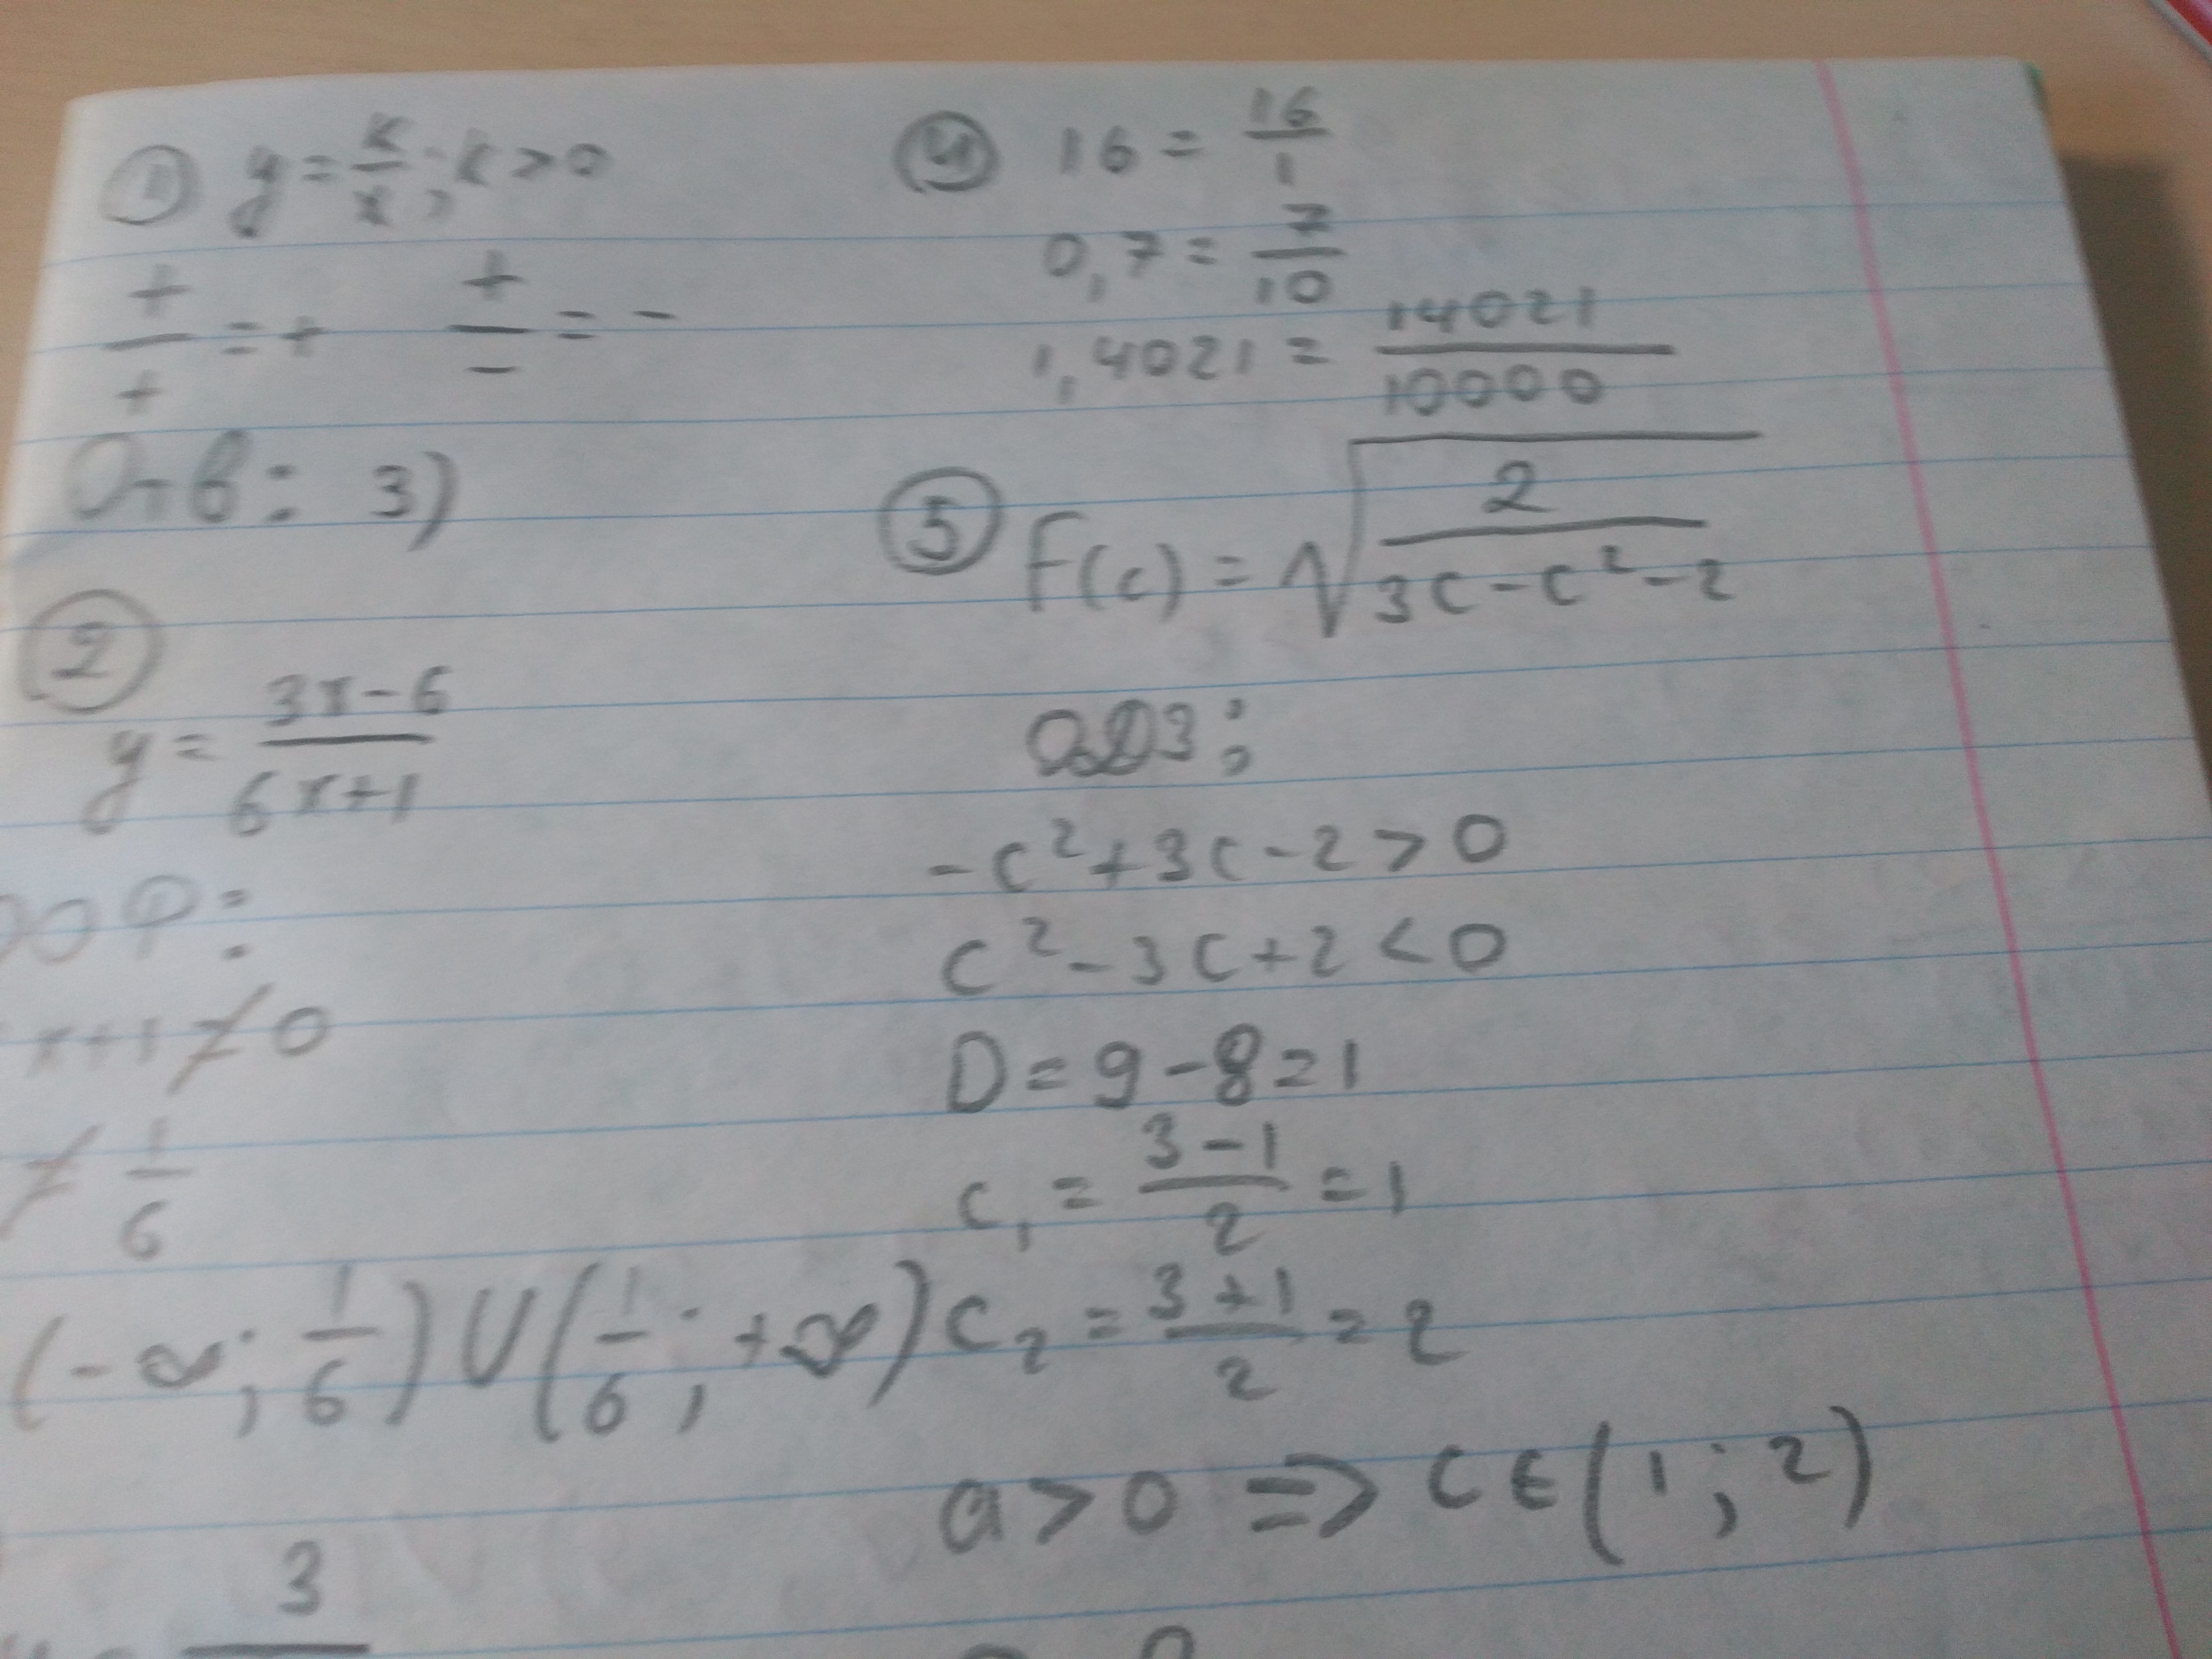 ① y = k/x ; k > 0
+/+ = +   +/- = -
Отв: 3)
②
y = (3x-6)/(6x+1)
ООФ:
x+1 ≠ 0
≠ 1/6
(-∞; 1/6) U (1/6; +∞)
3
④ 16 = 16/1
0,7 = 7/10
1,4021 = 14021/10000
⑤ F(c) = √(2/(3c-c²-2))
ОДЗ:
-c²+3c-2 > 0
c²-3c+2 < 0
D = 9-8 = 1
c₁ = (3-1)/2 = 1
c₂ = (3+1)/2 = 2
a > 0 => c ∈ (1; 2)